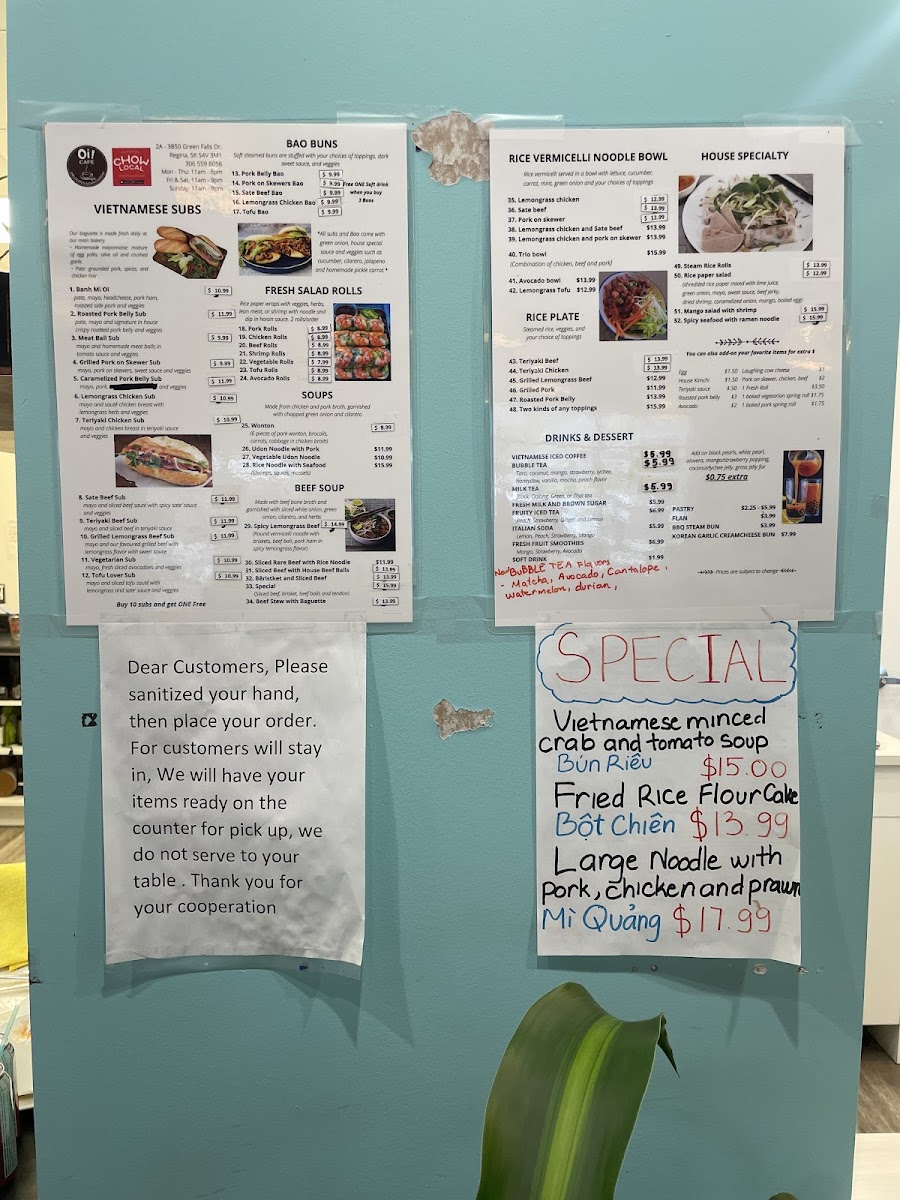 Oi!
CAFE
CHOW
LOCAL
2A - 3850 Green Falls Dr,
Regina, SK S4V 3M1
306 559 6056
Mon - Thu: 11am - 8pm
Fri & Sat: 11am - 9pm
Sunday: 11am - 8pm
VIETNAMESE SUBS
Our baguette is made fresh daily at
our main bakery.
- Homemade mayonnaise: mixture
of egg yolks, olive oil and crushed
garlic.
- Pate: grounded pork, spices, and
chicken liver
1. Banh Mi Oi $ 10.99
pate, mayo, headcheese, pork ham,
roasted side pork and veggies
2. Roasted Pork Belly Sub $ 11.99
pate, mayo and signature in house
crispy roasted pork belly and veggies
3. Meat Ball Sub $ 9.99
mayo and homemade meat balls in
tomato sauce and veggies
4. Grilled Pork on Skewer Sub $ 9.99
mayo, pork on skewers, sweet sauce and veggies
5. Caramelized Pork Belly Sub $ 11.99
mayo, pork, and veggies
6. Lemongrass Chicken Sub $ 10.99
mayo and sauté chicken breast with
lemongrass herb and veggies
7. Teriyaki Chicken Sub $ 10.99
mayo and chicken breast in teriyaki sauce
and veggies
8. Sate Beef Sub $ 11.99
mayo and sliced beef sauté with spicy sate sauce
and veggies
9. Teriyaki Beef Sub $ 11.99
mayo and sliced beef in teriyaki sauce
10. Grilled Lemongrass Beef Sub $ 11.99
mayo and our favoured grilled beef with
lemongrass flavor with sweet sauce
11. Vegetarian Sub $ 10.99
mayo, fresh sliced avocadoes and veggies
12. Tofu Lover Sub $ 10.99
mayo and sliced tofu sauté with
lemongrass and sate sauce and veggies
Buy 10 subs and get ONE Free
BAO BUNS
Soft steamed buns are stuffed with your choices of toppings, dark
sweet sauce, and veggies
13. Pork Belly Bao $ 9.99
14. Pork on Skewers Bao $ 9.99
15. Sate Beef Bao $ 9.99
16. Lemongrass Chicken Bao $ 9.99
17. Tofu Bao $ 9.99
Free ONE Soft drink
when you buy
3 Baos
*All subs and Bao come with
green onion, house special
sauce and veggies such as
cucumber, cilantro, jalapeno
and homemade pickle carrot *
FRESH SALAD ROLLS
Rice paper wraps with veggies, herbs,
lean meat, or shrimp with noodle and
dip in hoisin sauce. 2 rolls/order
18. Pork Rolls $ 8.99
19. Chicken Rolls $ 8.99
20. Beef Rolls $ 8.99
21. Shrimp Rolls $ 8.99
22. Vegetable Rolls $ 7.99
23. Tofu Rolls $ 8.99
24. Avocado Rolls $ 8.99
SOUPS
Made from chicken and pork broth, garnished
with chopped green onion and cilantro
25. Wonton $ 8.99
(6 pieces of pork wonton, brocolis,
carrots, cabbage in chicken broth)
26. Udon Noodle with Pork $11.99
27. Vegetable Udon Noodle $10.99
28. Rice Noodle with Seafood $15.99
(Shrimps, squids, mussels)
BEEF SOUP
Made with beef bone broth and
garnished with sliced white onion, green
onion, cilantro, and herbs
29. Spicy Lemongrass Beef $ 14.99
(Round vermicelli noodle with
briskets, beef ball, pork ham in
spicy lemongrass flavor)
30. Sliced Rare Beef with Rice Noodle $11.99
31. Sliced Beef with House Beef Balls $ 13.99
32. Bèristket and Sliced Beef $ 13.99
33. Special $ 15.99
(Sliced beef, brisket, beef balls and tendon)
34. Beef Stew with Baguette $ 13.99
RICE VERMICELLI NOODLE BOWL
Rice vermicelli served in a bowl with lettuce, cucumber,
carrot, mint, green onion and your choices of toppings
35. Lemongrass chicken $ 12.99
36. Sate beef $ 13.99
37. Pork on skewer $ 12.99
38. Lemongrass chicken and Sate beef $13.99
39. Lemongrass chicken and pork on skewer $13.99
40. Trio bowl $15.99
(Combination of chicken, beef and pork)
41. Avocado bowl $13.99
42. Lemongrass Tofu $12.99
RICE PLATE
Steamed rice, veggies, and
your choice of toppings
43. Teriyaki Beef $ 13.99
44. Teriyaki Chicken $ 13.99
45. Grilled Lemongrass Beef $12.99
46. Grilled Pork $11.99
47. Roasted Pork Belly $13.99
48. Two kinds of any toppings $15.99
HOUSE SPECIALTY
49. Steam Rice Rolls $ 13.99
50. Rice paper salad $ 12.99
(shredded rice paper mixed with lime juice,
green onion, mayo, sweet sauce, beef jerky,
dried shrimp, caramelized onion, mango, boiled egg)
51. Mango salad with shrimp $ 15.99
52. Spicy seafood with ramen noodle $ 15.99
You can also add-on your favorite items for extra $
Egg $1.50
House Kimchi $1.50
Teriyaki sauce $.50
Roasted pork belly $3
Avocado $2
Laughing cow cheese $1
Pork on skewer, chicken, beef $2
1 Fresh Roll $3.50
1 baked vegetarian spring roll $1.75
1 baked pork spring roll $1.75
DRINKS & DESSERT
VIETNAMESE ICED COFFEE $5.99
BUBBLE TEA $5.99
Taro, coconut, mango, strawberry, lychee,
honeydew, vanilla, mocha, peach flavor
MILK TEA $5.99
Black, Oolong, Green, or Thai tea
FRESH MILK AND BROWN SUGAR $5.99
FRUITY ICED TEA $6.99
Peach, Strawberry, Ginger and Lemon
ITALIAN SODA $5.99
Lemon, Peach, Strawberry, Mango
FRESH FRUIT SMOOTHIES $6.99
Mango, Strawberry, Avocado
SOFT DRINK $1.99
Add on black pearls, white pearl,
aloevera, mango/strawberry popping,
coconut/lychee jelly, grass jelly for
$0.75 extra
PASTRY $2.25 - $5.99
FLAN $3.99
BBQ STEAM BUN $3.99
KOREAN GARLIC CREAMCHEESE BUN $7.99
Prices are subject to change
New BUBBLE TEA Flavors
- Matcha, Avocado, Cantalope,
watermelon, durian,
Dear Customers, Please
sanitized your hand,
then place your order.
For customers will stay
in, We will have your
items ready on the
counter for pick up, we
do not serve to your
table . Thank you for
your cooperation
SPECIAL
Vietnamese minced
crab and tomato soup
Bún Riêu $15.00
Fried Rice Flour Cake
Bột Chiên $13.99
Large Noodle with
pork, chicken and prawn
Mì Quảng $17.99